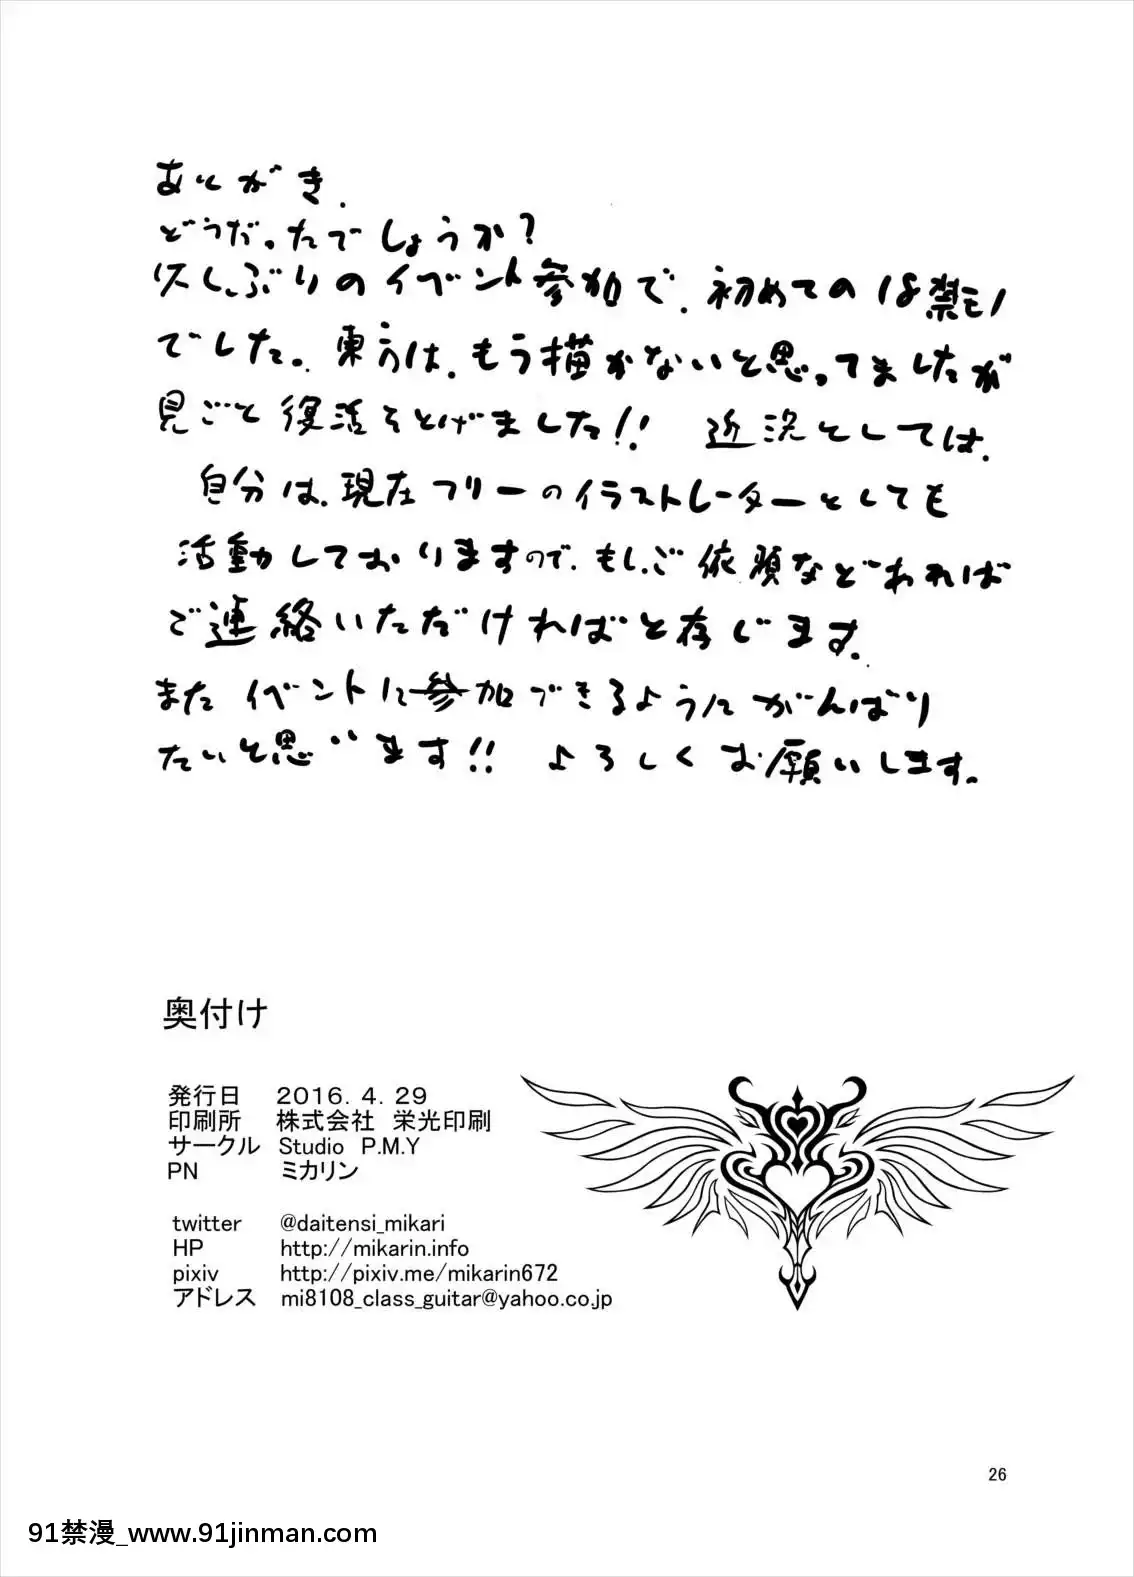 あとがき.
どうだったでしょうか?
久しぶりのイベント参加で、初めての18禁モノ
でした。東方は、もう描かないと思ってましたが
見ごと復活をとげました!! 近況としては、
自分は、現在フリーのイラストレーターとしても
活動しておりますので、もしご依頼などあれば
ご連絡いただければと存じます。
またイベントに参加できるようにがんばり
たいと思います!! よろしくお願いします。
奥付け
発行日 2016.4.29
印刷所 株式会社 栄光印刷
サークル Studio P.M.Y
PN ミカリン
twitter @daitensi_mikari
HP http://mikarin.info
pixiv http://pixiv.me/mikarin672
アドレス mi8108_class_guitar@yahoo.co.jp
26
91禁漫_www.91jinman.com